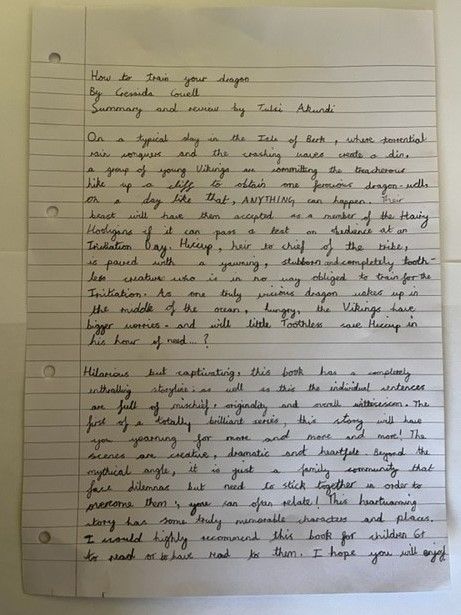 How to train your dragon
By Cressida Cowell
Summary and review by Tulsi Akundi
On a typical day in the Isle of Berk, where torrential
rain conquers and the crashing waves create a din,
a group of young Vikings are committing the treacherous
hike up a cliff to obtain one ferocious dragon - well
on a day like that, ANYTHING can happen. Their
beast will have them accepted as a member of the Hairy
Hooligans if it can pass a test on obedience at an
Initiation Day. Hiccup, heir to chief of the tribe,
is paired with a yawning, stubborn and completely tooth-
less creature who is in no way obliged to train for the
Initiation. As one truly vicious dragon wakes up in
the middle of the ocean, hungry, the Vikings have
bigger worries - and will little Toothless save Hiccup in
his hour of need...?
Hilarious but captivating, this book has a completely
enthralling storyline; as well as this the individual sentences
are full of mischief, originality and overall
first of a totally brilliant series, this story will have
you yearning for more and more and more! The
scenes are creative, dramatic and heartfelt. Beyond the
mythical angle, it is just a family community that
face dilemnas but need to stick together in order to
overcome them; you can often relate! This heartwarming
story has some truly memorable characters and places.
I would highly recommend this book for children 6+
to read or to have read to them. I hope you will enjoy